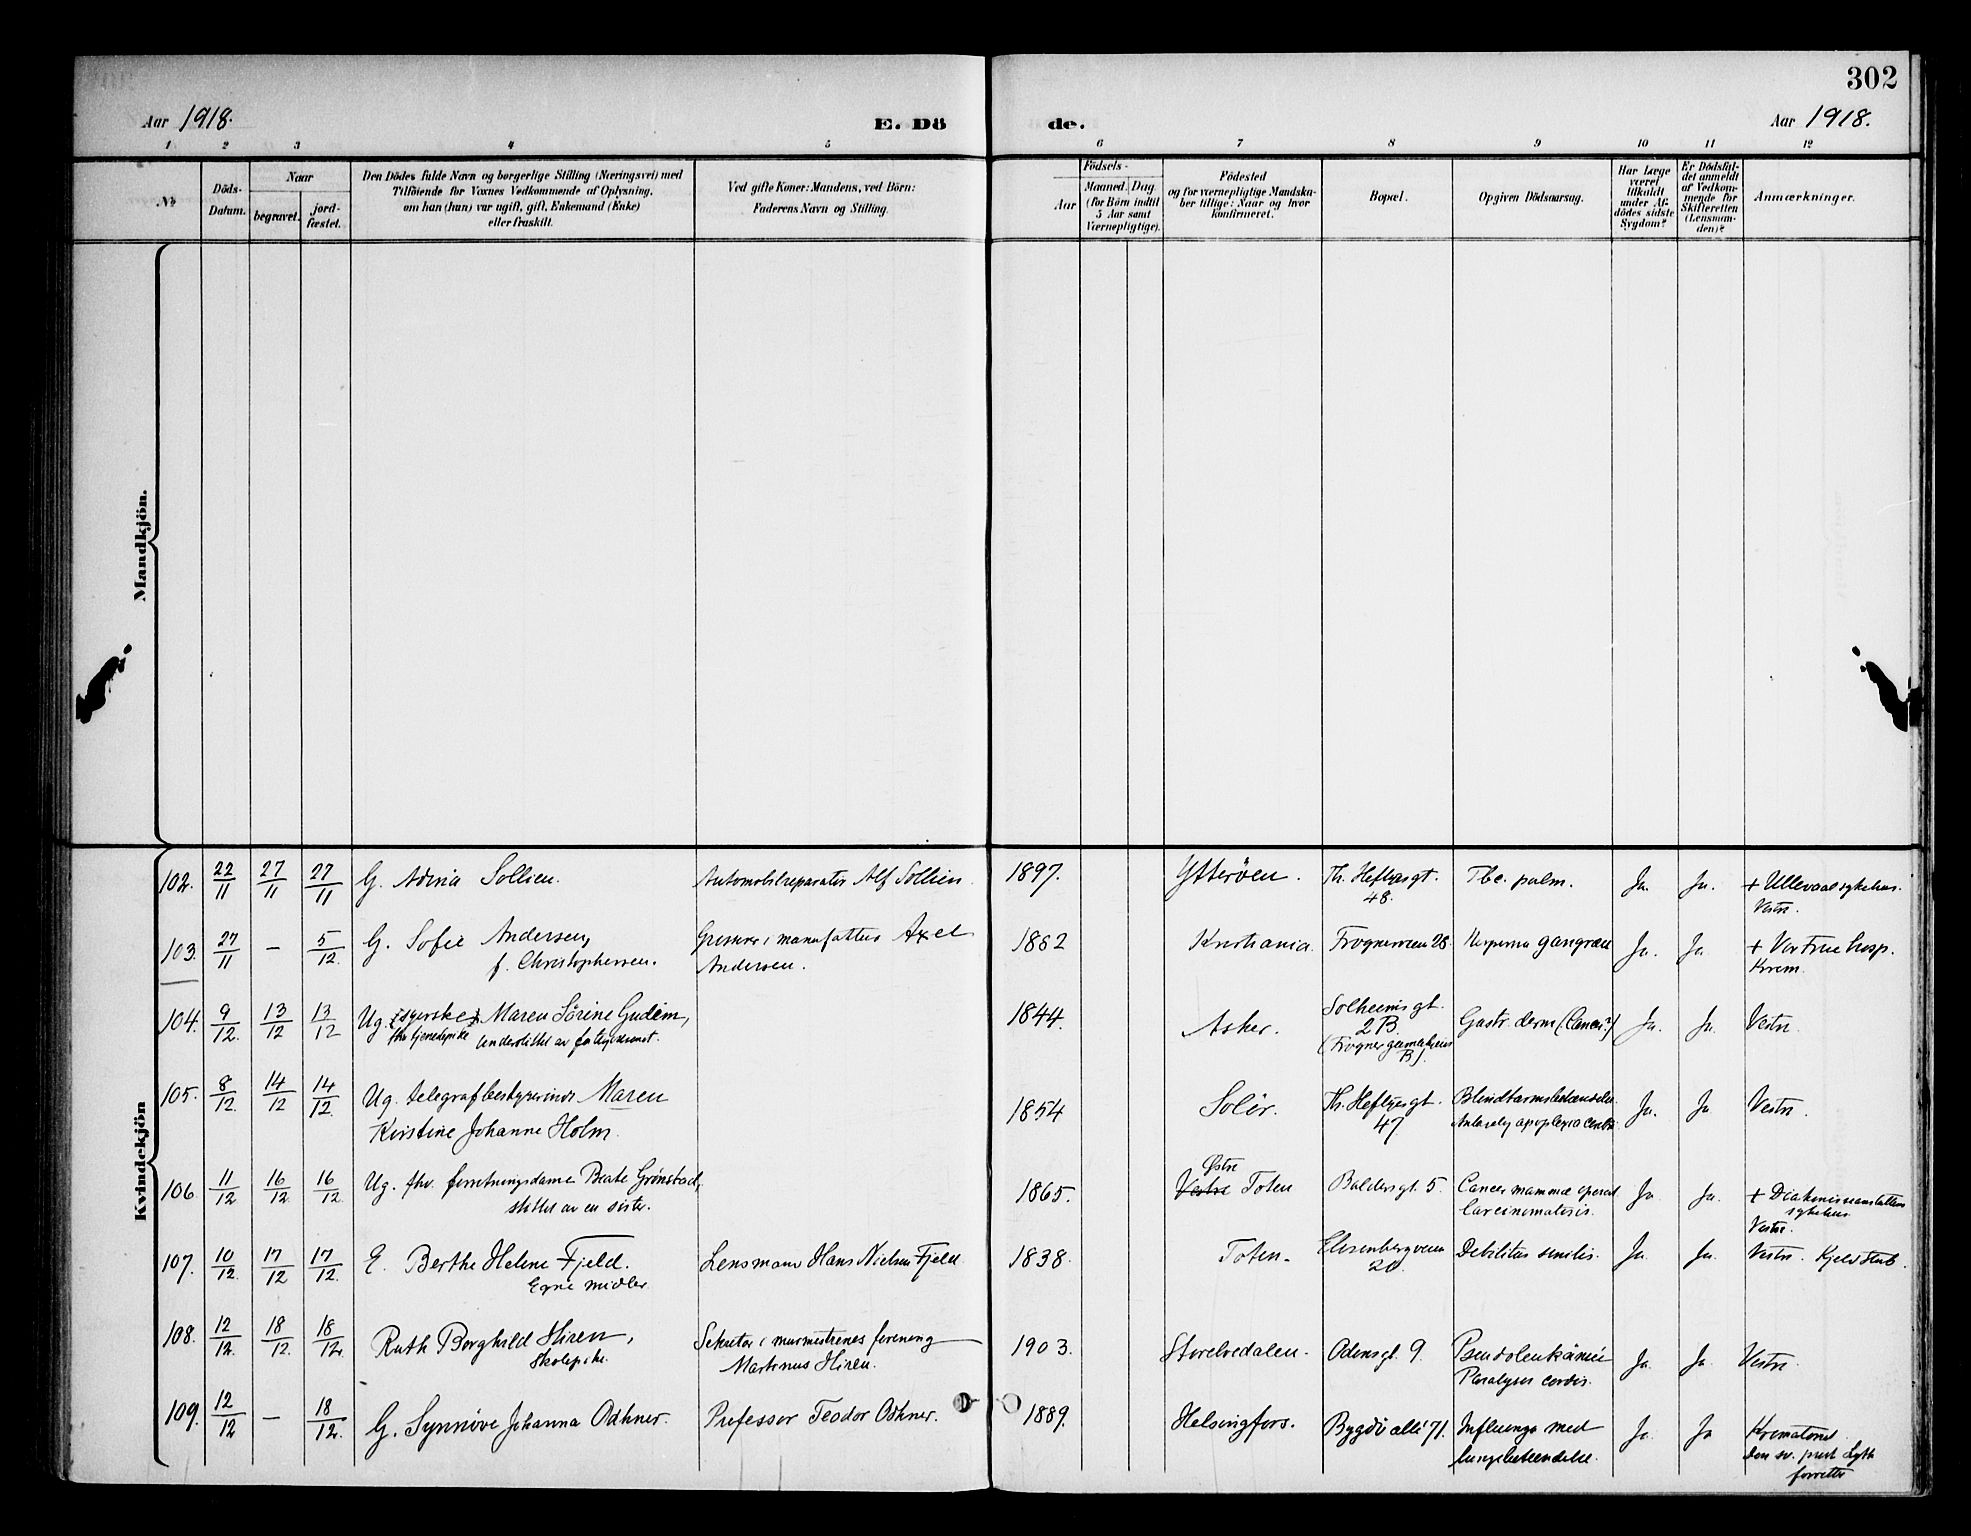 302
Aar 1918.
E. Dö
de.
Aar 1918.
1 2 3 4 5 6 7 8 9 10 11 12
No
Döds-
Datum.
Naar
begravet.
jord-
fæstet.
Den Dödes fulde Navn og borgerlige Stilling (Næringsvei) med
Tilföiende for Voxnes Vedkommende af Oplysning,
om han (hun) var ugift, gift, Enkemand (Enke)
eller fraskilt.
Ved gifte Koner: Mandens, ved Börn:
Faderens Navn og Stilling.
Födsels-
Aar
Maaned. Dag
(for Börn indtil
5 Aar samt
Værnepligtige).
Födested
og for værnepligtige Mandska-
ber tillige: Naar og hvor
konfirmeret.
Bopæl.
Opgiven Dödsaarsag.
Har Læge
været
tilkaldt
under Af-
dödes sidste
Sygdom?
Er Dödsfal-
det anmeldt
af Vedkom-
mende for
Skifteretten
(Lensman-
den)?
Anmærkninger.
Mandkjön.
Kvindekjön
102. 22/11 27/11 27/11 G. Sollien. Automobilreparatør Alf Sollien. 1897. Ytterøen. Th. Heftyesgt. Tbc. pulm. Ja. Ja. + Ullevaal sykehus.
48. Vestre.
103. 27/11 — 5/12. G. Sofie Andersen, Grosserer i manufaktur Axel 1862 Kristiania. Frognerveien 28. gangræn Ja. Ja. + Vor Frue hosp.
f. Christophersen. Andersen. Krem.
104. 9/12. 13/12 13/12 Ug. syerske Maren Sörine Gudem, 1844. Asker. Solheimsgt. Gastr. (Cancer?) Ja. Ja. Vestre.
2B.
fhv. tjenestepike understøttet av
(Frogner gamlehjem
B).
105. 8/12. 14/12 14/12. Ug. telegrafbestyrerinde Maren 1854 Solør. Th. Heftyesgt. Blindtarmsbetændelse. Ja. Ja Vestre.
Kirstine Johanne Holm. 47 apoplexia
106. 11/12 16/12. 16/12 Ug. fhv. forretningsdame Beate Grønstad, 1865. Østre Vestre Toten Baldersgt. 5. Cancer mammæ operat. Ja. Ja. + Diakonisseanstaltens
støttet av en søster. Carcinomatosis. sykehus
Vestre.
107. 10/12. 17/12 17/12. E. Berthe Helene Fjeld. Lensmann Hans Nielsen Fjeld 1838. Toten. Elisenbergveien Debilitas senilis. Ja. Ja. Vestre. Kjeld Stub.
Egne midler. 20.
108. 12/12. 18/12. 18/12. Ruth Borghild Hiren, Sekretær i murmestrenes forening 1903. Storelvedalen. Odinsgt. 9. Pseudoleukämie Ja. Ja. Vestre.
Skolepike. Martinus Hiren. Paralysis cordis.
109. 12/12 — 18/12. G. Synnöve Johanna Odhner. Professor Teodor Odhner. 1889. Helsingfors. Bygdö allé 71. Influenza med Ja. Ja Krematoriet.
lungebetændelse. Den sv. prest
forretter